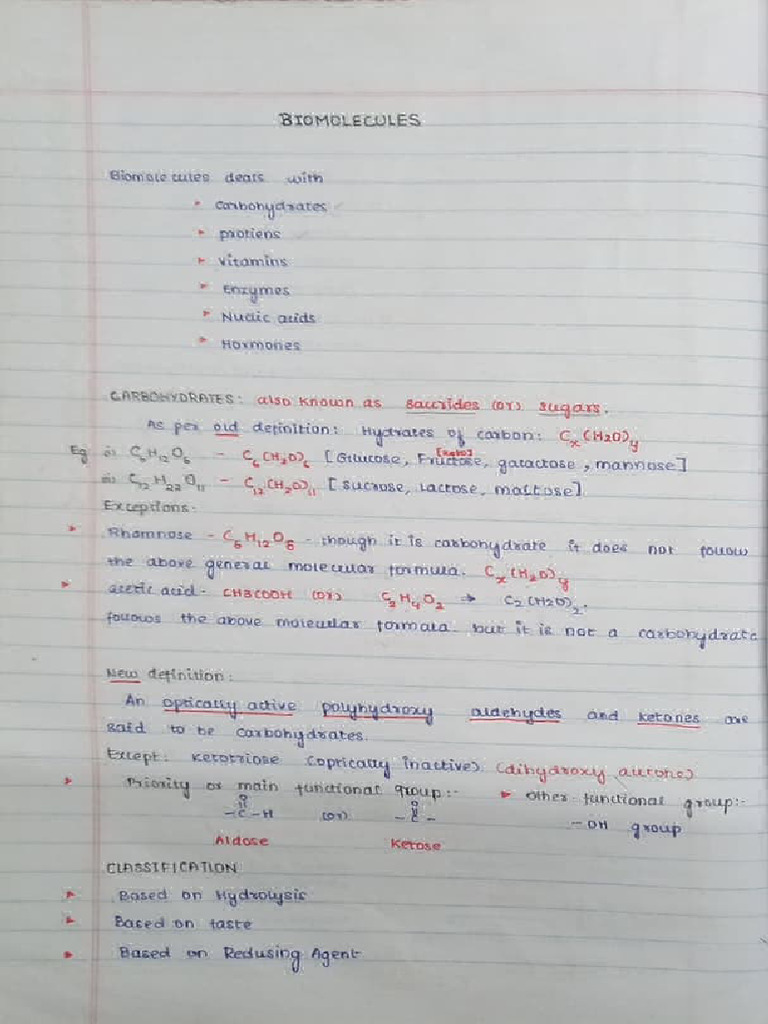 BIOMOLECULES
Biomolecules deals with
carbohydrates
protiens
vitamins
Enzymes
Nuclic acids
Hormones
CARBOHYDRATES: also known as saccrides (or) sugars.
As per old definition: Hydrates of carbon: Cx(H2O)y
Eg (i) C6H12O6 - C6(H2O)6 [Glucose, Fructose, galactose, mannose]
(ii) C12H22O11 - C12(H2O)11 [sucrose, Lactose, maltose]
Exceptions:
Rhamnose - C6H12O5 - though it is carbohydrate it does not follow
the above general molecular formula. Cx(H2O)y
acetic acid - CH3COOH (or) C2H4O2 → C2(H2O)2.
follows the above molecular formula but it is not a carbohydrate
New definition:
An optically active polyhydroxy aldehydes and ketones are
said to be carbohydrates.
Except: ketotriose (optically inactive) (dihydroxy
Priority or main functional group:- Other functional group:-
O O
-C-H (or) -C- -OH group
Aldose Ketose
CLASSIFICATION
Based on Hydrolysis
Based on taste
Based on Redusing Agent